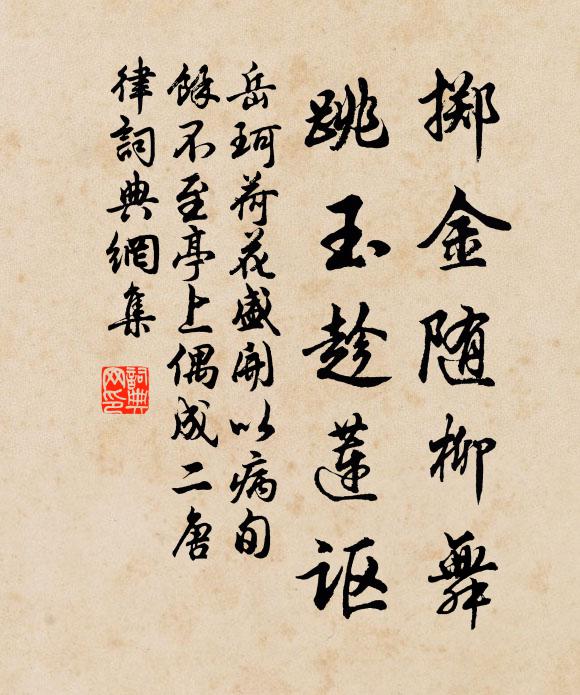 掷金随柳舞
跳玉趁莲讴
岳珂荷花盛開以病旬
餘不至亭上偶成二唐
律詞典網集
詞典网印